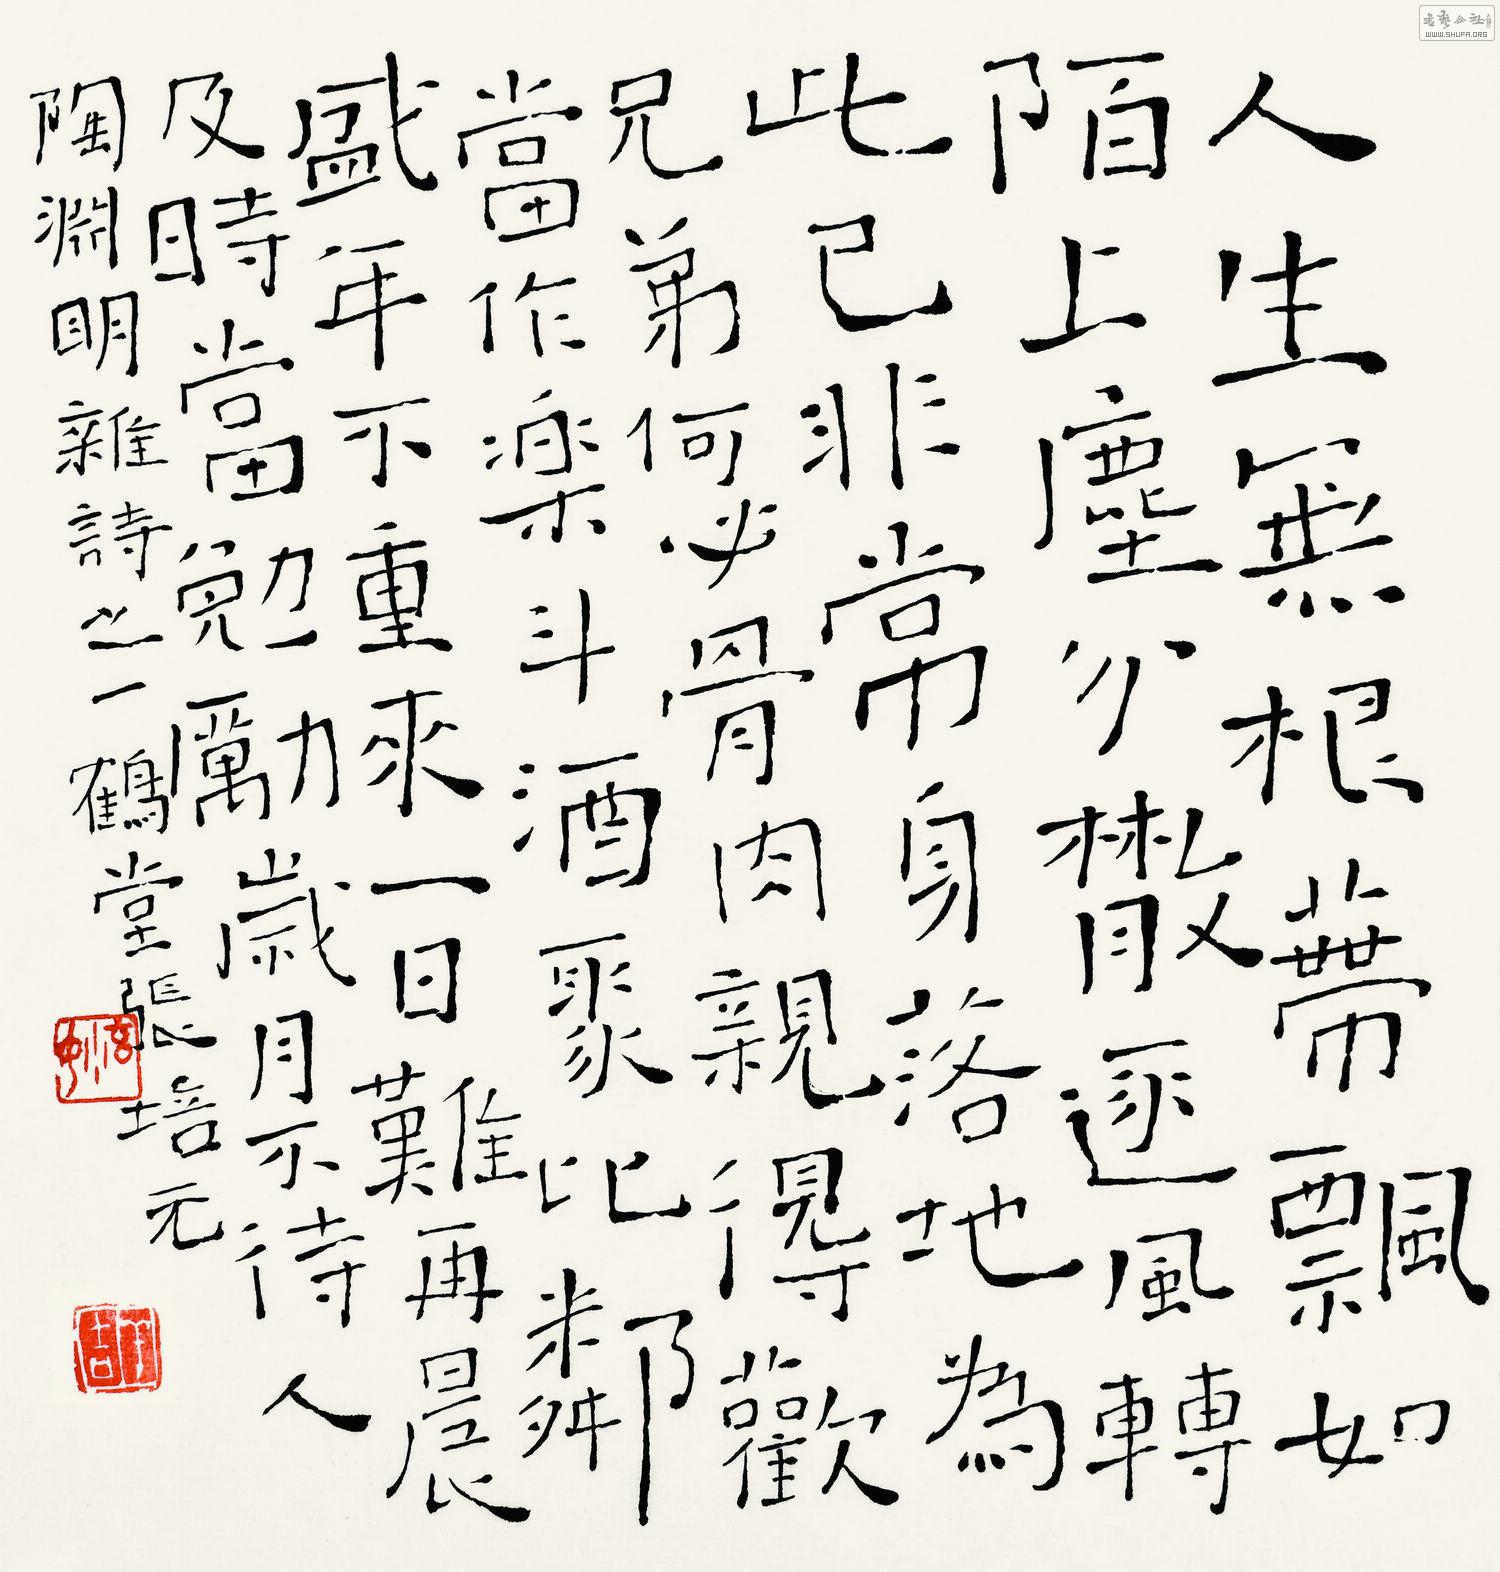 人生無根蔕飄如
陌上塵分散逐風轉
此已非常身落地為
兄弟何必骨肉親得歡
當作楽斗酒聚比鄰
盛年不重來一日難再晨
及時當勉勵歲月不待人
陶淵明雜詩之一鶴堂張培元
WWW.SHUFA.ORG